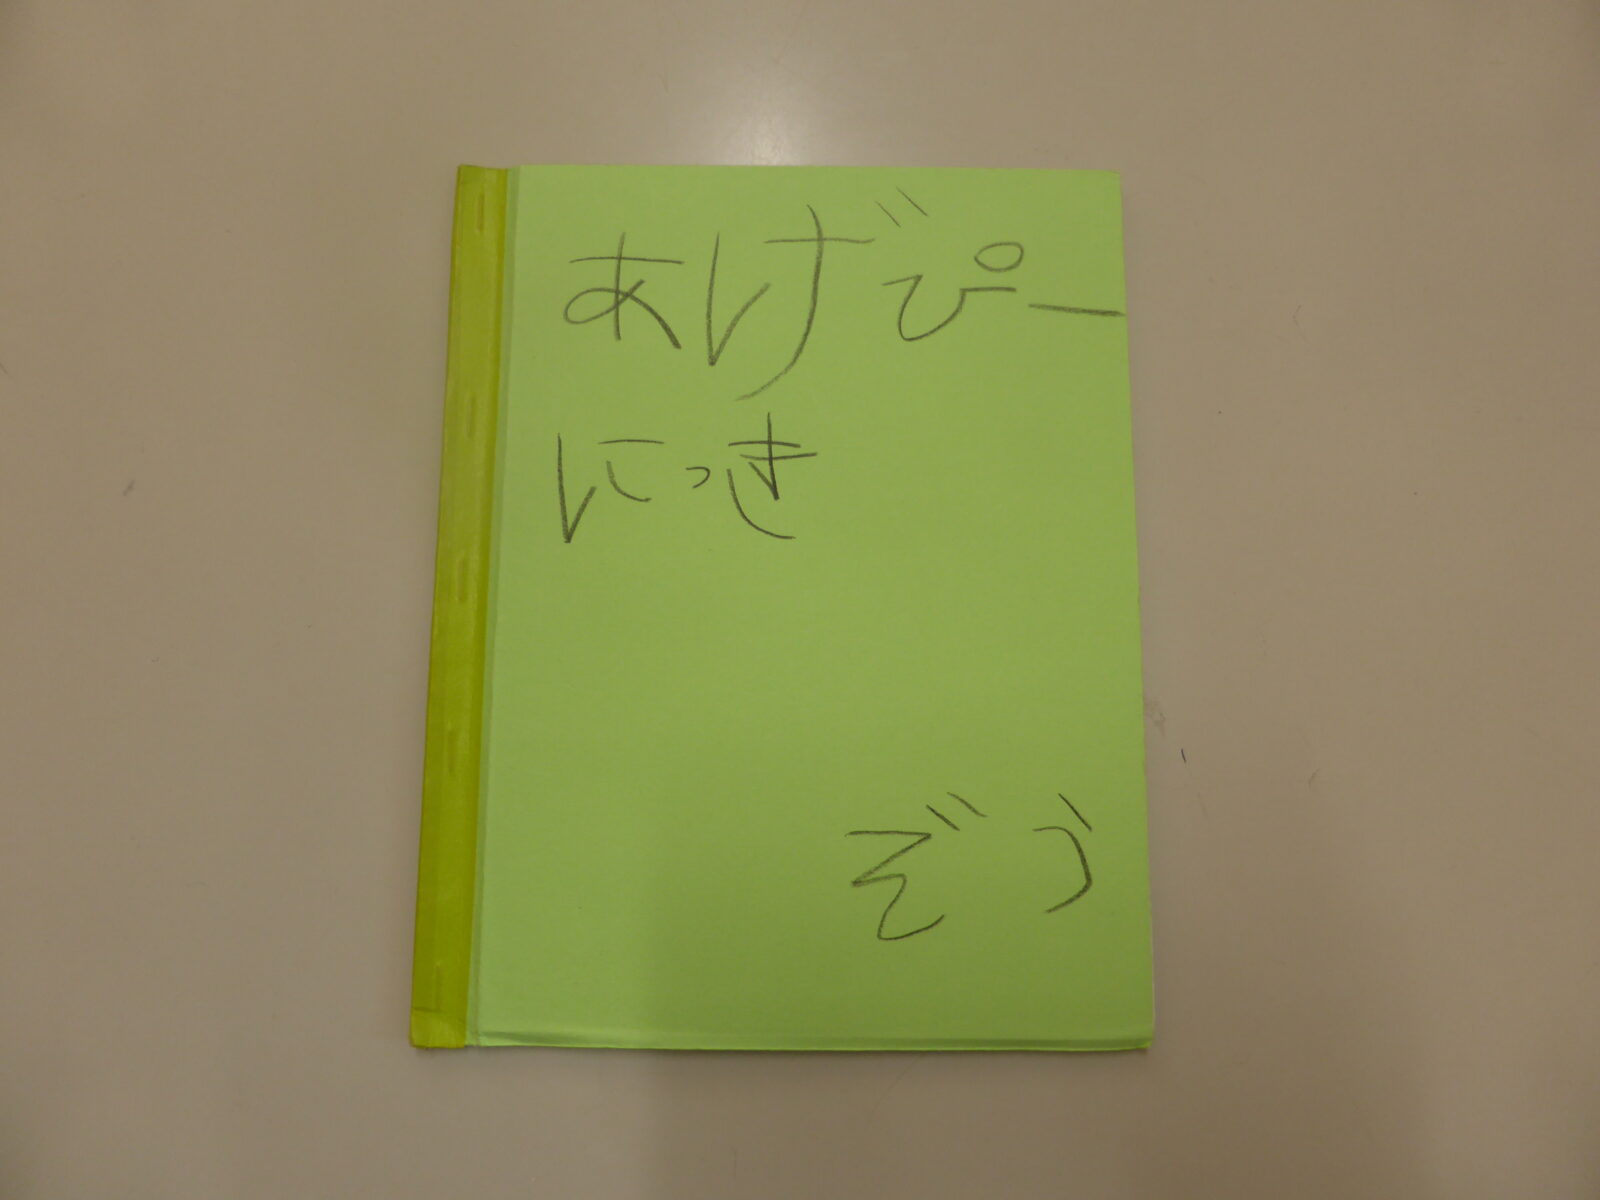 あげぴー
にっき
ぞう